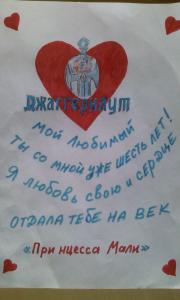 ДЖАГГЕРНАУТ
МОЙ ЛЮБИМЫЙ
ТЫ СО МНОЙ УЖЕ ШЕСТЬ ЛЕТ!
Я ЛЮБОВЬ СВОЮ И СЕРДЦЕ
ОТДАЛА ТЕБЕ НА ВЕК
«Принцесса Мали»